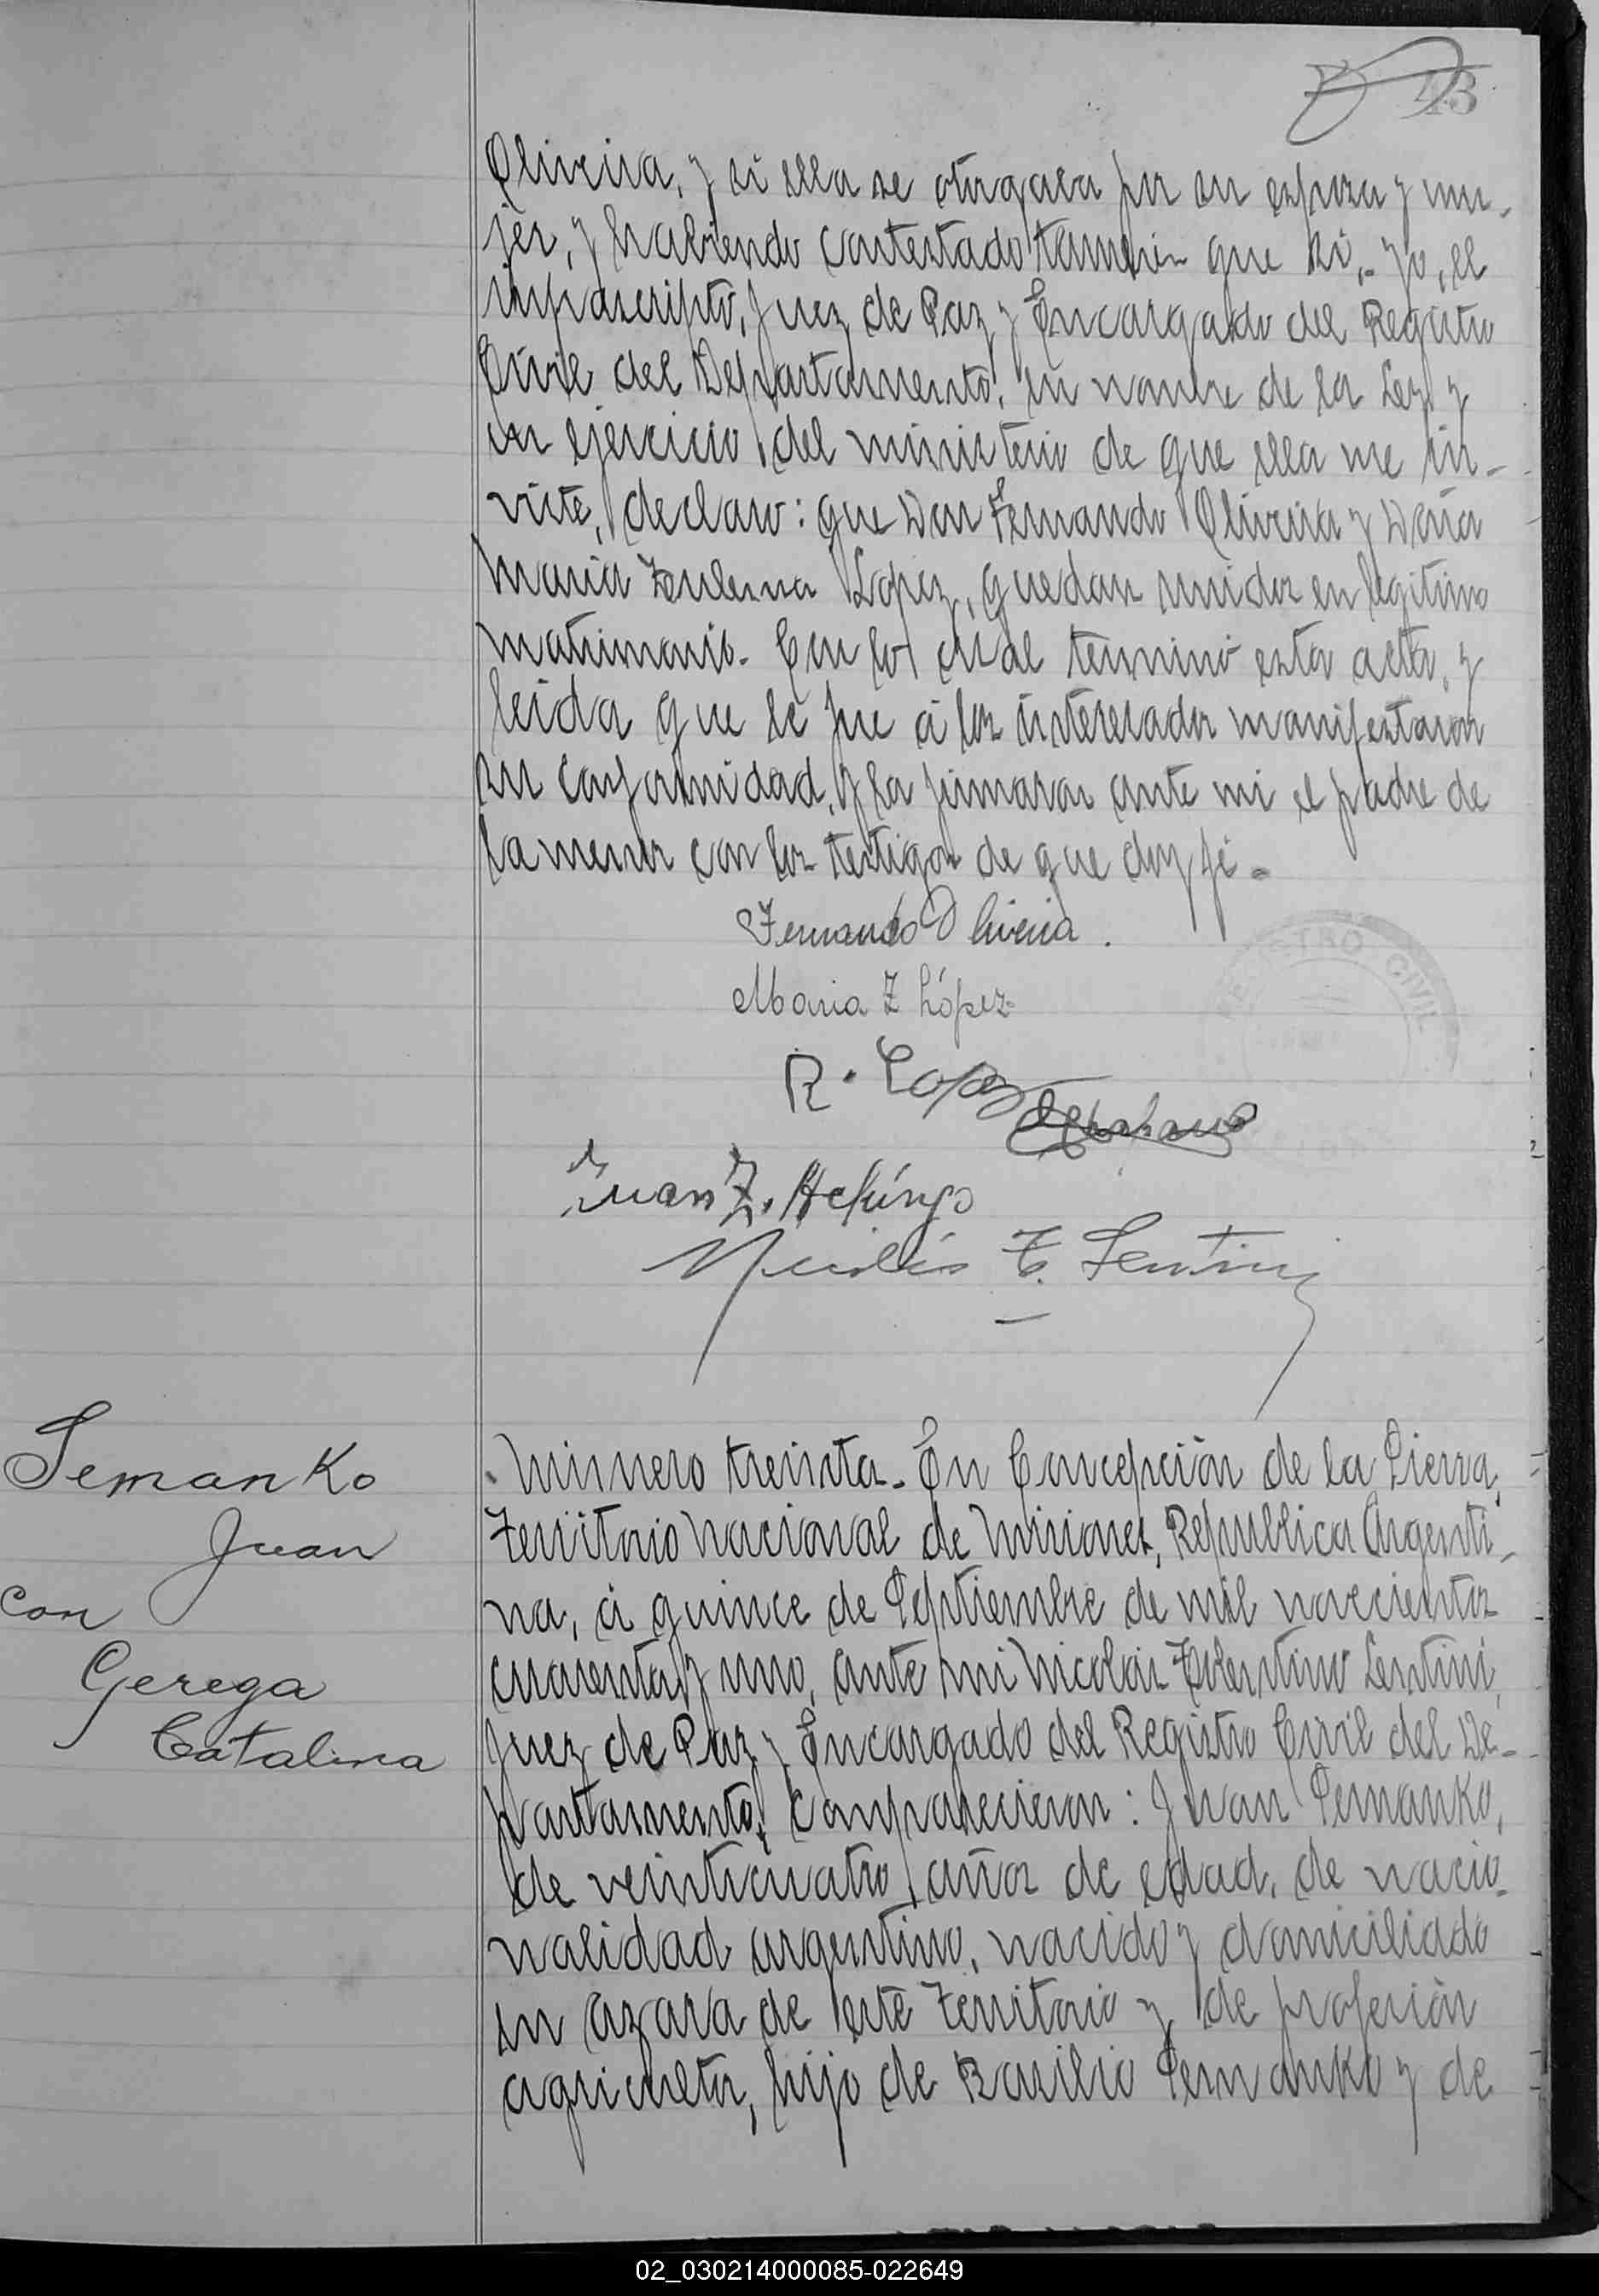 43
Oliveira, y si ella se otorgaba por su esposa y mu-
jer, y habiendo contestado tambien que si,- yo, el
infrascripto, Juez de Paz y Encargado del Registro
Civil del Departamento, en nombre de la Ley y
en ejercicio del ministerio de que ella me in-
viste, declaro: que Don Fernando Oliveira y Doña
Maria Zulema Lopez, quedan unidos en legitimo
matrimonio. Con lo cual terminó esta acta, y
leida que le fue á los interesados manifestaron
su conformidad, y la firmaron ante mi el padre de
la menor con los testigos de que doy fé.-
Fernando Oliveira.
Maria Z López
REGISTRO CIVIL
R. Lopez
Juan Z.
Nicolás T. Lentini
Semanko
Juan
con
Gerega
Catalina
Número treinta.- En Concepción de la Sierra,
Territorio Nacional de Misiones, Republica Argenti-
na, á quince de Septiembre de mil novecientos
cuarenta y uno, ante mi Nicolás Tolentino Lentini,
Juez de Paz y Encargado del Registro Civil del De-
partamento, comparecieron: Juan Semanko,
de veinticuatro años de edad, de nacio-
nalidad argentino, nacido y domiciliado
en Azara de este Territorio y de profesión
agricultor, hijo de Basilio Semanko y de
02_030214000085-022649